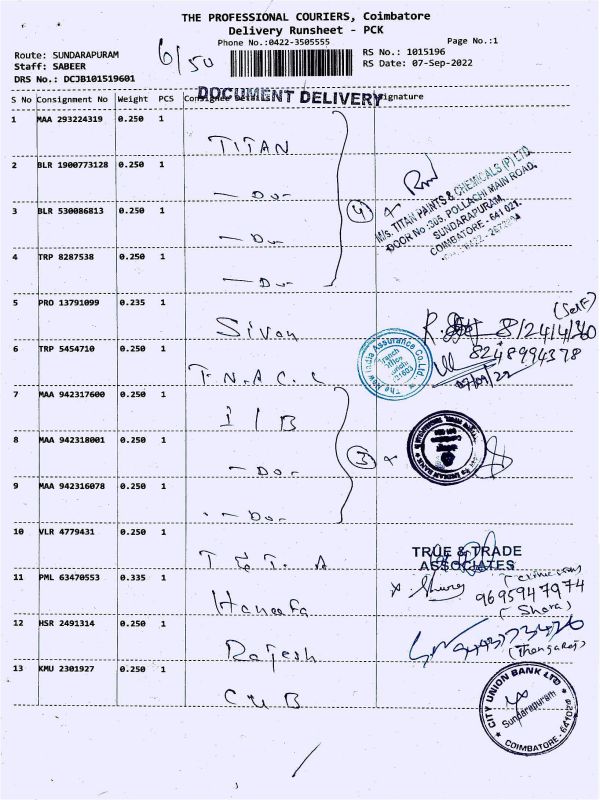 THE PROFESSIONAL COURIERS, Coimbatore
Delivery Runsheet - PCK
Phone No.:0422-3505555
Page No.:1
Route: SUNDARAPURAM
Staff: SABEER
DRS No.: DCJB101519601
6/50
RS No.: 1015196
RS Date: 07-Sep-2022
S No Consignment No Weight PCS
DOCUMENT DELIVERY
1 MAA 293224319 0.250 1 TITAN
2 BLR 1900773128 0.250 1 - Do -
3 BLR 530086813 0.250 1 - Do -
4 TRP 8287538 0.250 1 - Do -
4
M/s. TITAN PAINTS & CHEMICALS (P) LTD.
DOOR No :305, POLLACHI MAIN ROAD,
SUNDARAPURAM,
COIMBATORE - 641 021.
5 PRO 13791099 0.235 1 Sivan
(Self)
6 TRP 5454710 0.250 1 T.N.A.C.
The New India Assurance Co. Ltd.
8248994378
7 MAA 942317600 0.250 1 I I B
8 MAA 942318001 0.250 1 - Do -
9 MAA 942316078 0.250 1 - Do -
3
10 VLR 4779431 0.250 1 T & T. A
TRUE & TRADE
ASSOCIATES
11 PML 63470553 0.335 1 Haneefa
9695947974
12 HSR 2491314 0.250 1 Rajesh
(Thangaraj)
13 KMU 2301927 0.250 1 CUB
CITY UNION BANK LTD
Sundarapuram
COIMBATORE-641024